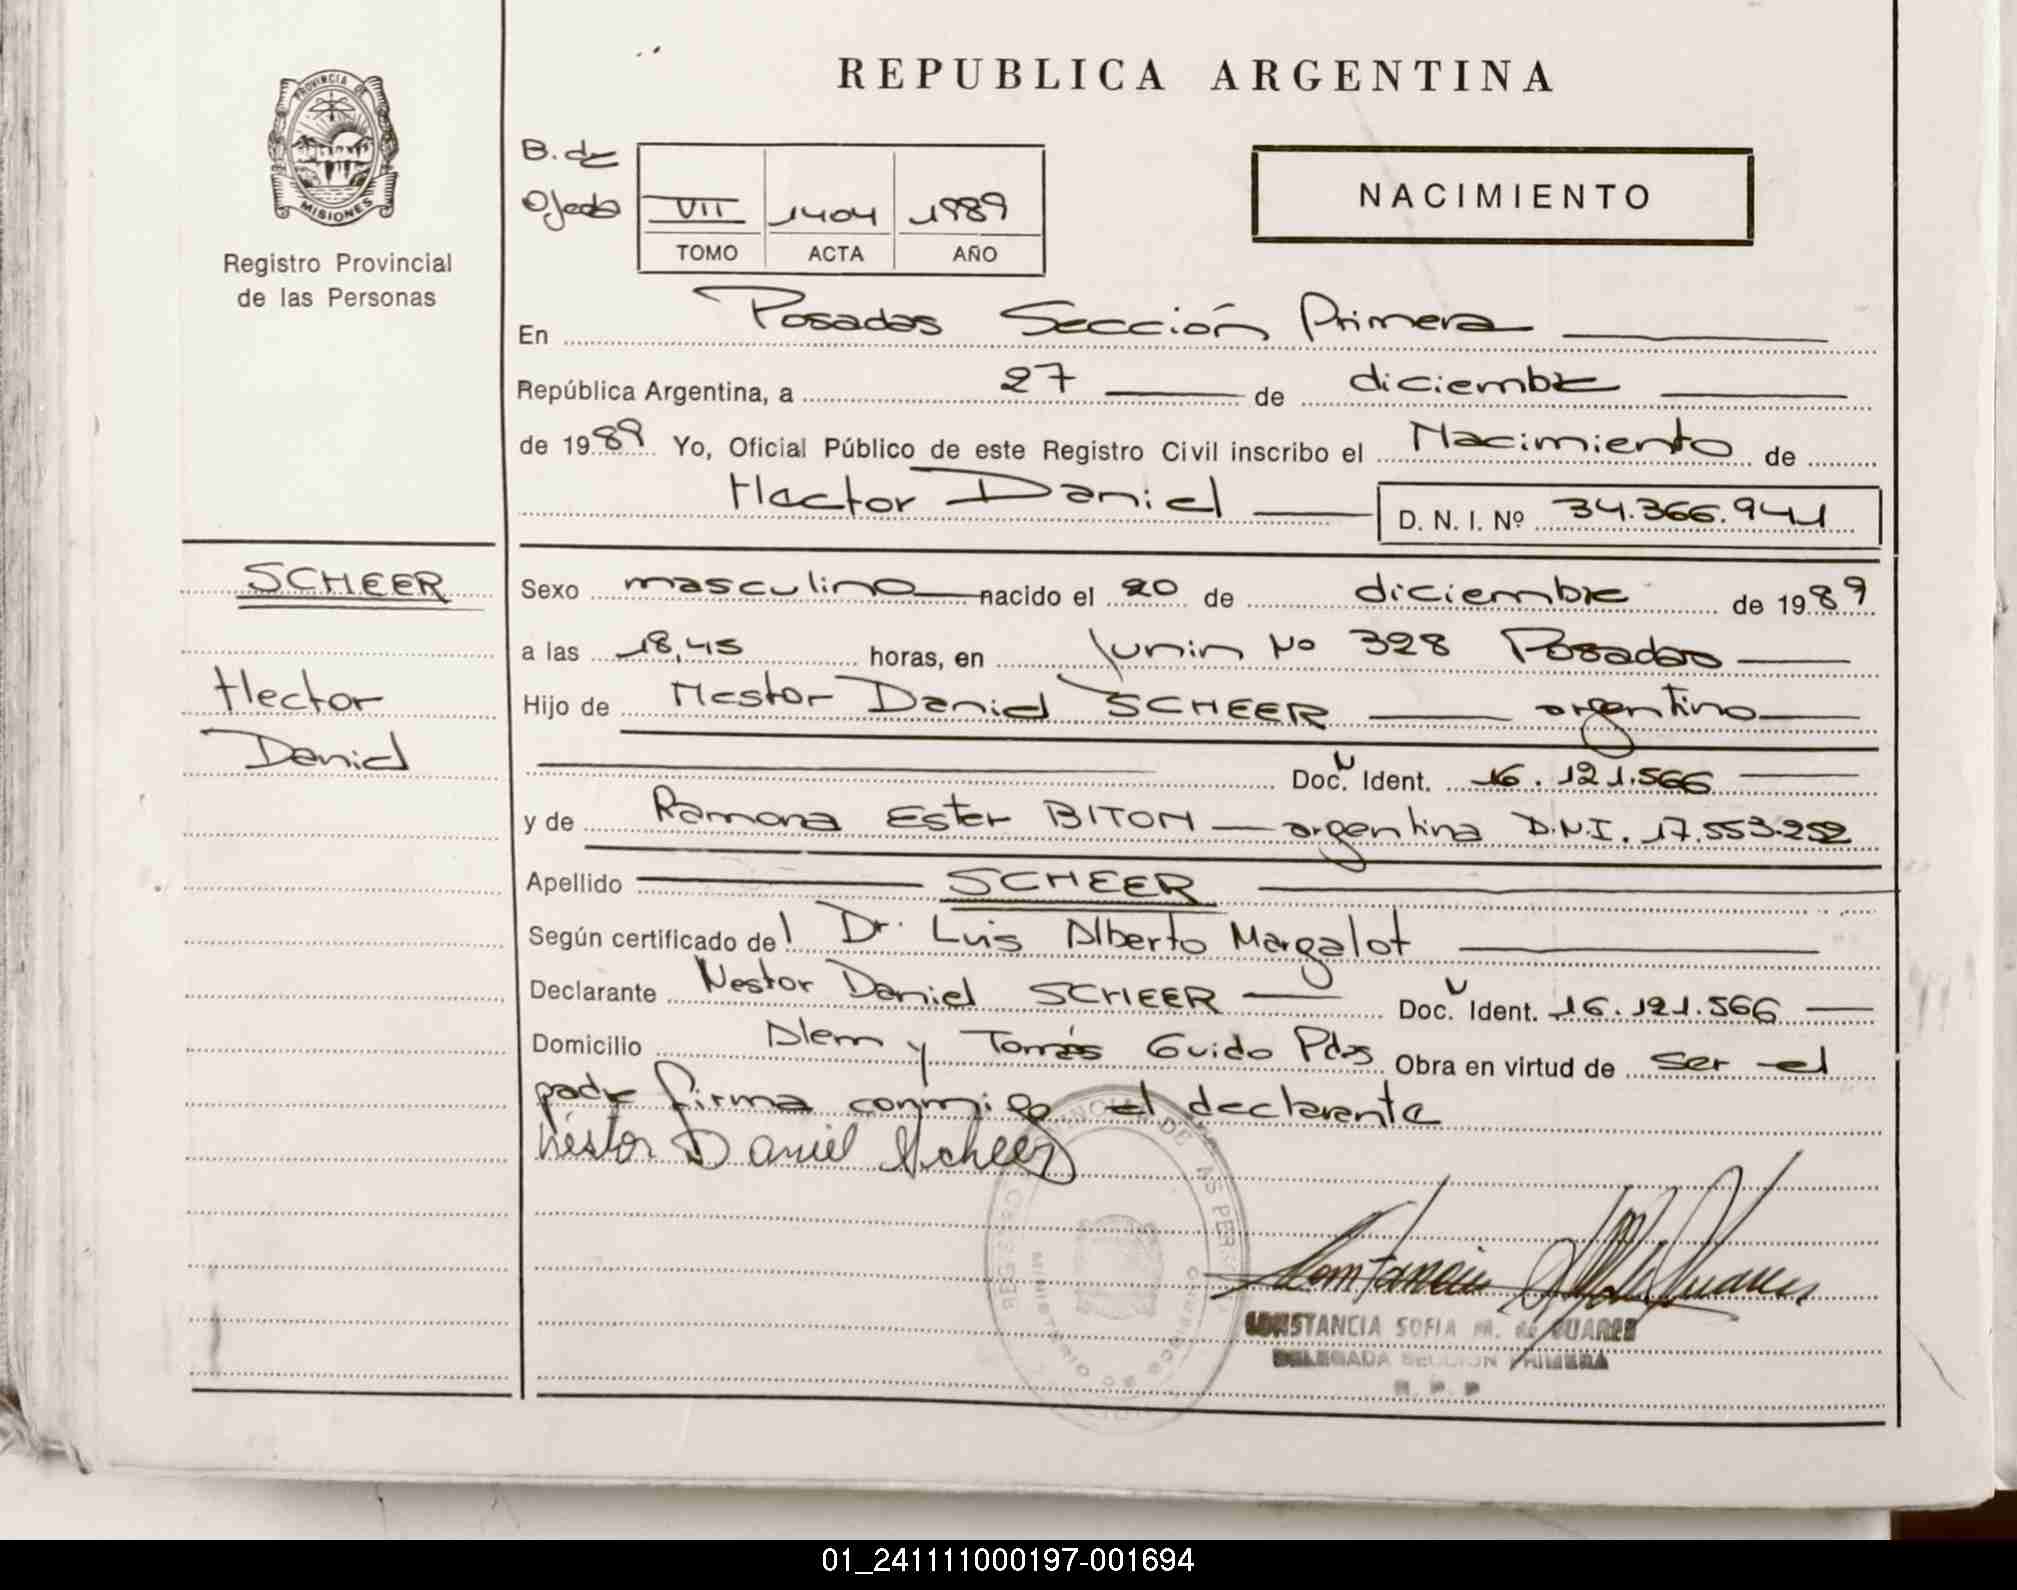 PROVINCIA DE
MISIONES
Registro Provincial
de las Personas
REPUBLICA ARGENTINA
B. de
Ojeda
VII 1404 1989
TOMO ACTA AÑO
NACIMIENTO
En Posadas Sección Primera
República Argentina, a 27 de diciembre
de 1989 Yo, Oficial Público de este Registro Civil inscribo el Nacimiento de
Hector Daniel D. N. I. Nº 34.366.941
SCHEER
Hector
Daniel
Sexo masculino nacido el 20 de diciembre de 1989
a las 18,45 horas, en Junin No 328 Posadas
Hijo de Nestor Daniel SCHEER argentino
Doc. Ident. 16.121.566
y de Ramona Ester BITON argentina D.N.I. 17.553.252
Apellido SCHEER
Según certificado del Dr. Luis Alberto Margalot
Declarante Nestor Daniel SCHEER Doc. Ident. 16.121.566
Domicilio Alem y Tomás Guido Pdas Obra en virtud de ser el
padre firma conmigo el declarante
Néstor Daniel Scheer
CONSTANCIA SOFIA M. de SUAREZ
DELEGADA SECCION PRIMERA
R. P. P
01_241111000197-001694